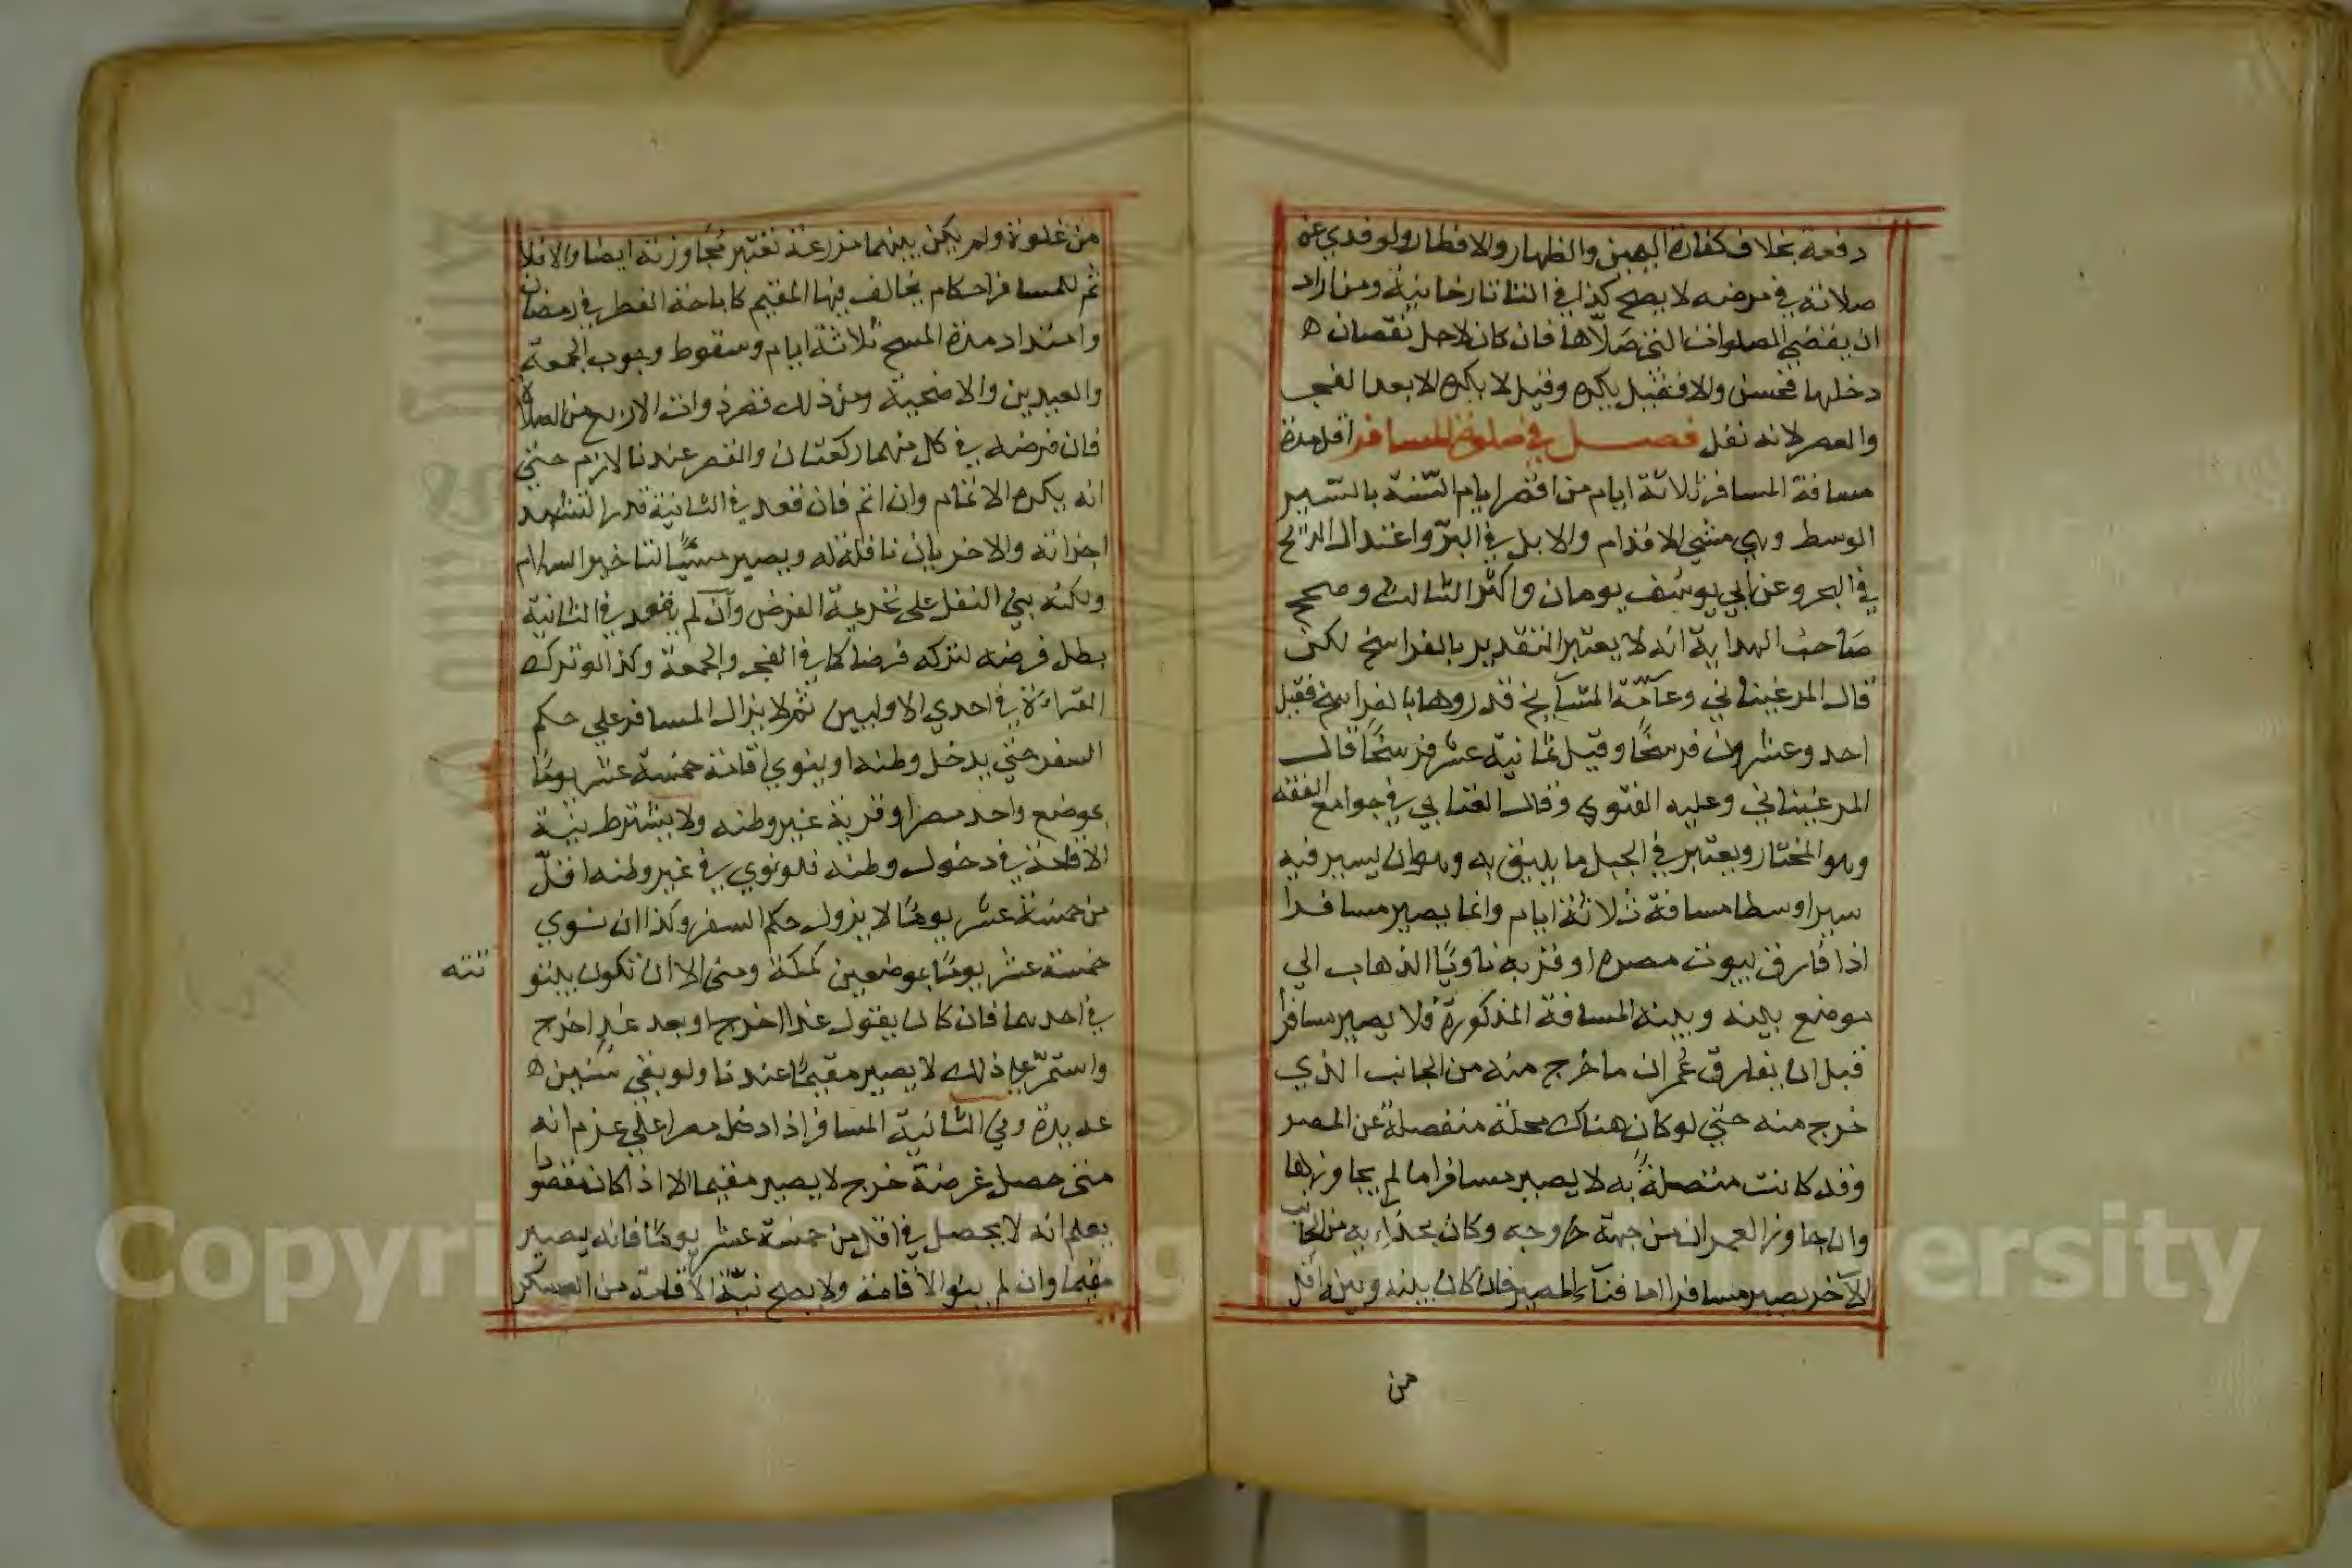 دفعة بخلاف كفارة اليمين والظهار والافطار ولو فدي عن
صلاته في مرضه لا يصح كذا في التتارخانية ومن اراد
ان يقضي الصلوات التي صلاها فان كان لاجل نقصان ه
دخلها فحسن والا فقيل يكره وقيل لا يكره الا بعد الفجر
والعصر لانه نفل فصل في صلوة المسافر اقل مدة
مسافة المسافر ثلاثة ايام من اقصر ايام السّنة بالسّير
الوسط وهي مشي الاقدام والابل في البرّ واعتدال الريح
في البحر وعن ابي يوسف يومان واكثر الثالث وصحح
صاحب الهداية انه لا يعتبر التقدير بالفراسخ لكن
قال المرغيناني وعامّة المشآيخ قدروها بالفراسخ فقيل
احد وعشرون فرسخًا وقيل ثمانية عشر فرسخًا قال
المرغيناني وعليه الفتوي وقال العتابي في جوامع الفقه
وهو المختار ويعتبر في الجبل ما يليق به وهو ان يسير فيه
سيرا وسطا مسافة ثلاثة ايام وانما يصير مسافرا
اذا فارق بيوت مصره او قريه ناويًا الذهاب الي
موضع بينه وبينه المسافة المذكورة فلا يصير مسافرا
قبل ان يفارق عُمران ما خرج منه من الجانب الذي
خرج منه حتي لو كان هناك محلة منفصلة عن المصر
وقد كانت متصلةً به لا يصير مسافرا ما لم يجاوزها
وان جاوز العمران من جهة خروجه وكان بحذاءيه من الجانب
الآخر يصير مسافرا اما فنآء المصر فان كان بينه وبينه اقل
من
من غلوة ولم يكن بينهما مزرعة تعتبر مُجاوزته ايضا والا فلا
ثم للمسافر احكام يخالف فيها المقيم كاباحة الفطر في رمضان
وامتداد مدة المسح ثلاثة ايام وسقوط وجوب الجمعة
والعيدين والاضحية ومن ذلك قصر ذوات الاربع من الصلاة
فان فرضه في كل منهما ركعتان والقصر عندنا لازم حتي
انه يكره الاتمام وان اتم فان قعد في الثانية قدر التشهد
اجزاته والاخريان نافلة له ويصير مسيًا لتاخير السلام
ولكنه بني النفل علي تحريمة الفرض وان لم يقعد في الثانية
بطل فرضه لتركه فرضا كما في الفجر والجمعة وكذا لو ترك
القراءة في احدي الاوليين ثم لا يزال المسافر علي حكم
السفر حتي يدخل وطنه او ينوي اقامة خمسة عشر يومًا
بموضع واحد مصر او قرية غير وطنه ولا يشترط نية
الاقامة في دخول وطنه فلو نوي في غير وطنه اقلّ
من خمسة عشر يومًا لا يزول حكم السفر وكذا ان نوي
خمسة عشر يومًا بموضعين كمكة ومني الا ان تكون بيتو
تته
في احدهما فان كان يقول غدا اخرج او بعد غدٍ اخرج
واستمرّ علي ذلك لا يصير مقيمًا عندنا ولو بقي سنين ه
عديدة وفي المسافر اذا دخل مصرا علي عزم انه
متي حصل غرضه خرج لا يصير مقيما الا اذا كان مقصودا
يعلم انه لا يحصل في اقل من خمسة عشر يومًا فانه يصير
مقيما وان لم ينو الاقامة ولا يصح نيّة الاقامة من العسكر